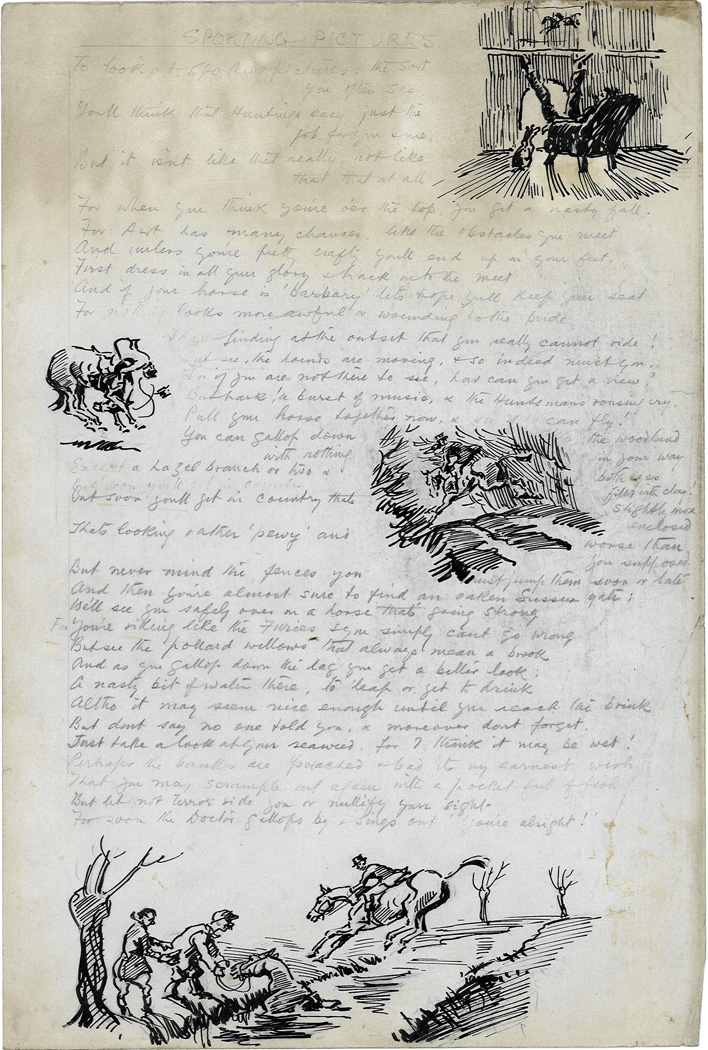 SPORTING PICTURES.
To look at sporting pictures, the sort
you often see
You'll think that Hunting's easy just the
job for you & me,
But it isn't like that really not like
that that at all
For when you think you're o'er the top, you get a nasty fall.
For Art has many chances, like the obstacles you meet
And unless you're pretty crafty you'll end up on your feet.
First dress in all your glory & hack onto the meet
And if your horse is 'barbary' let's hope you'll keep your seat
For nothing looks more awful or wounding to the pride
finding at the outset that you really cannot ride!
see, the hounds are moving, & so indeed must you..
if you are not there to see, how can you get a view?
But hark, a burst of music, & the Huntsmans rousing cry.
Pull your horse together now, & can fly!
You can gallop down the woodland
with nothing in your way
Except a hazel branch or two & both eyes
but soon you'll get in country
But soon you'll get in country thats slightly more
enclosed
Thats looking rather 'pewy' and worse than
you supposed.
But never mind the fences you must jump them soon or late
And then you're almost sure to find an oaken Sussex gate;
We'll see you safely over on a horse that's going strong
For You're sitting like the Furies & you simply cant go wrong
But see the 'pollard willows' that always mean a brook
And as you gallop down the lag you get a better look;
A nasty bit of water there, to leap or get to drink
Altho it may seem nice enough until you reach the brink
But dont say no one told you, & moreover dont forget.
Just take a look at your seaweed, for I think it may be wet!
Perhaps the banks are poached & bad its my earnest wish
That you may scramble out again with a pocket full of fish
But let not terror ride you or nullify your sight.
For soon the Doctor gallops by & sings out 'You're alright!'